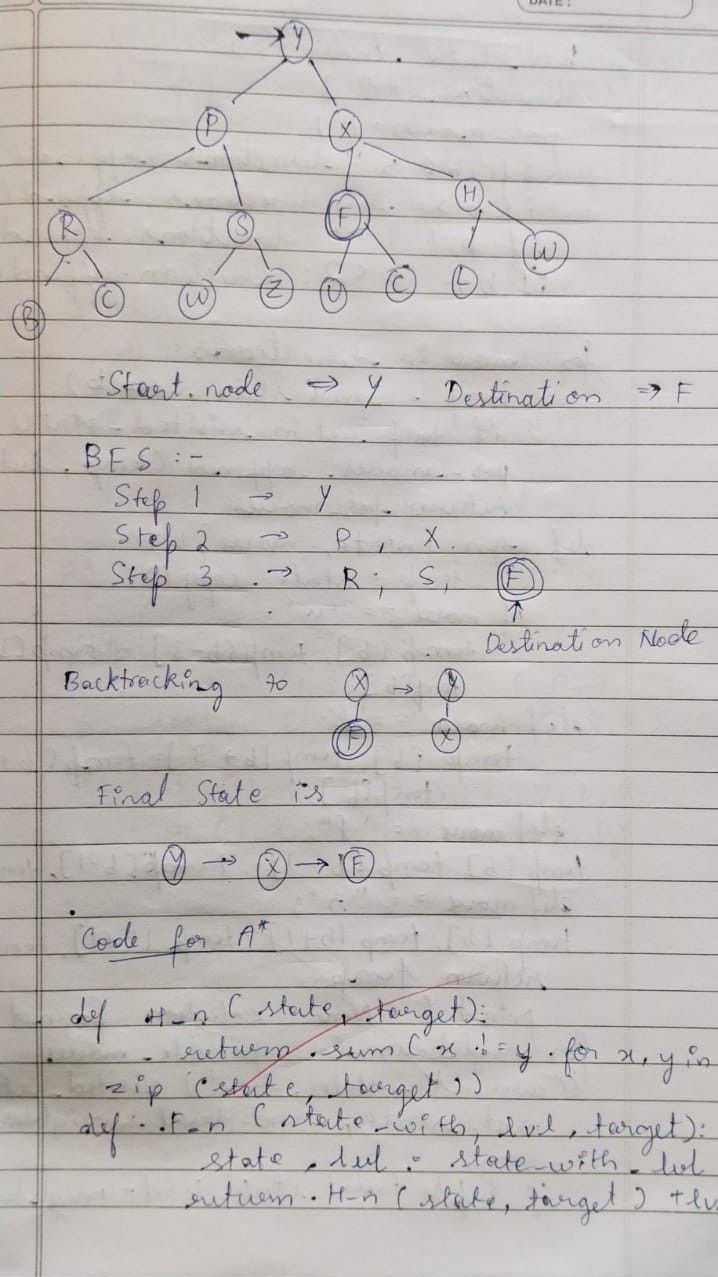 DATE :
Y
P X
R S F H
B C W Z U C L W
Start node ⇒ Y Destination ⇒ F
BFS :-
Step 1 → Y
Step 2 → P , X
Step 3 → R , S , F
Destination Node
Backtracking to X → Y
F X
Final State is
Y → X → F
Code for A*
def H_n ( state, target):
return sum ( x != y for x, y in
zip (state, target ))
def F_n ( state_with_lvl, target):
state , lvl = state_with_lvl
return H_n ( state, target ) + lv